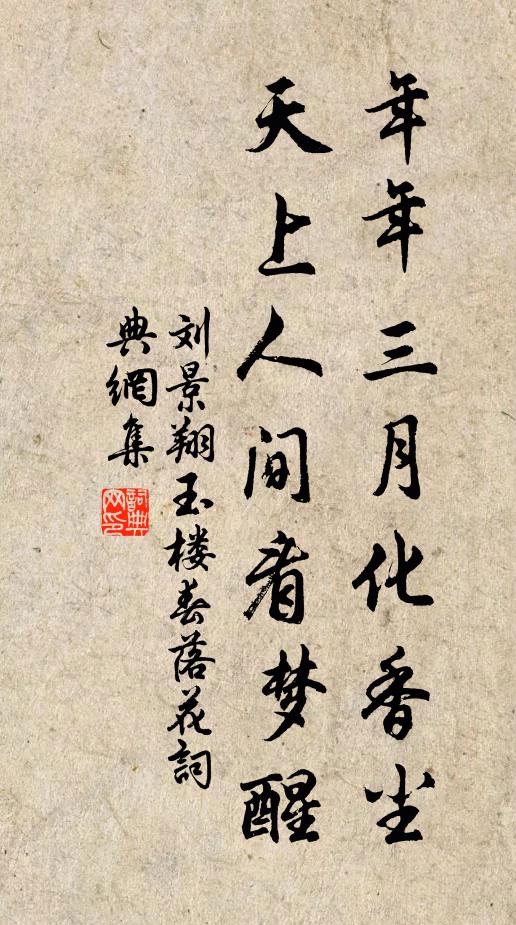 年年三月化香尘
天上人间看梦醒
刘景翔玉楼春落花詞
典網集
詞典网印